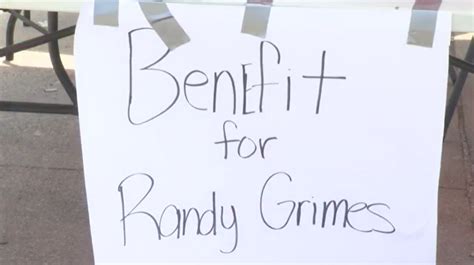 Benefit
for
Randy Grimes